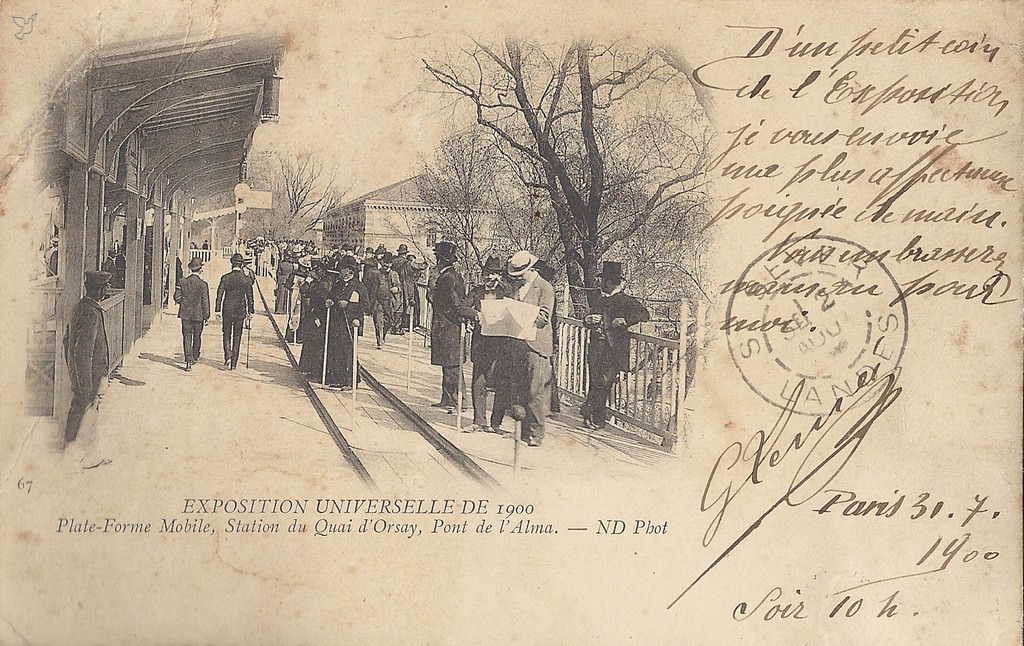 D'un petit coin
de l'Exposition
je vous envoie
ma plus affectueuse
poignée de main.
embrassez
maman pour
moi.
Paris 31. 7.
1900
Soir 10 h.
LANDES
67
EXPOSITION UNIVERSELLE DE 1900
Plate-Forme Mobile, Station du Quai d'Orsay, Pont de l'Alma. — ND Phot